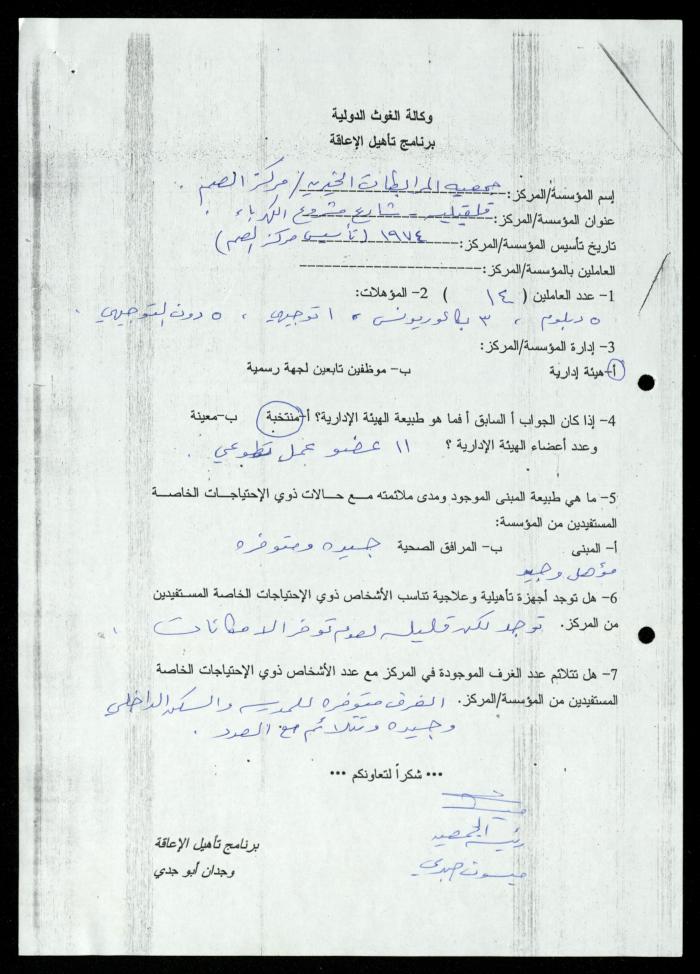 وكالة الغوث الدولية
برنامج تأهيل الإعاقة
إسم المؤسسة/المركز: جمعية المرابطات الخيرية / مركز الصم
عنوان المؤسسة/المركز: قلقيلية - شارع مشروع الكهرباء.
تاريخ تأسيس المؤسسة/المركز: ١٩٧٤ (تأسيس مركز الصم)
العاملين بالمؤسسة/المركز:
1- عدد العاملين ( ١٤ ) 2- المؤهلات:
٥ دبلوم ، ٣ بكالوريوس ، ١ توجيهي ، ٥ دون التوجيهي .
3- إدارة المؤسسة/المركز:
أ-هيئة إدارية ب- موظفين تابعين لجهة رسمية
4- إذا كان الجواب أ السابق أ فما هو طبيعة الهيئة الإدارية؟ أ-منتخبة ب-معينة
وعدد أعضاء الهيئة الإدارية ؟ ١١ عضو عمل تطوعي .
5- ما هي طبيعة المبنى الموجود ومدى ملائمته مع حالات ذوي الإحتياجات الخاصة
المستفيدين من المؤسسة:
أ- المبنى ب- المرافق الصحية جيده ومتوفره
مؤهل وجيد
6- هل توجد أجهزة تأهيلية وعلاجية تناسب الأشخاص ذوي الإحتياجات الخاصة المستفيدين
من المركز. توجد لكن قليله لعدم توفر الامكانات .
7- هل تتلائم عدد الغرف الموجودة في المركز مع عدد الأشخاص ذوي الإحتياجات الخاصة
المستفيدين من المؤسسة/المركز. الغرف متوفره للمدرسه والسكن الداخلي
وجيده وتتلائم مع العدد .
*** شكراً لتعاونكم ***
رئيسة الجمعيه
برنامج تأهيل الإعاقة
وجدان أبو جدي